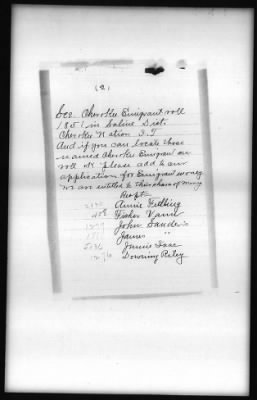 (2)
See Cherokee Emigrant roll
1851 in Saline Dist.
Cherokee Nation I.T
And if you can locate those
named Cherokee Emigrant on
roll please add to our
application for Emigrant money
we are entitled to their share of money
Respt
Annie Fielding
408 Fisher Vann
1277 John Sanders
James "
Jennie Isaac
Downing Riley